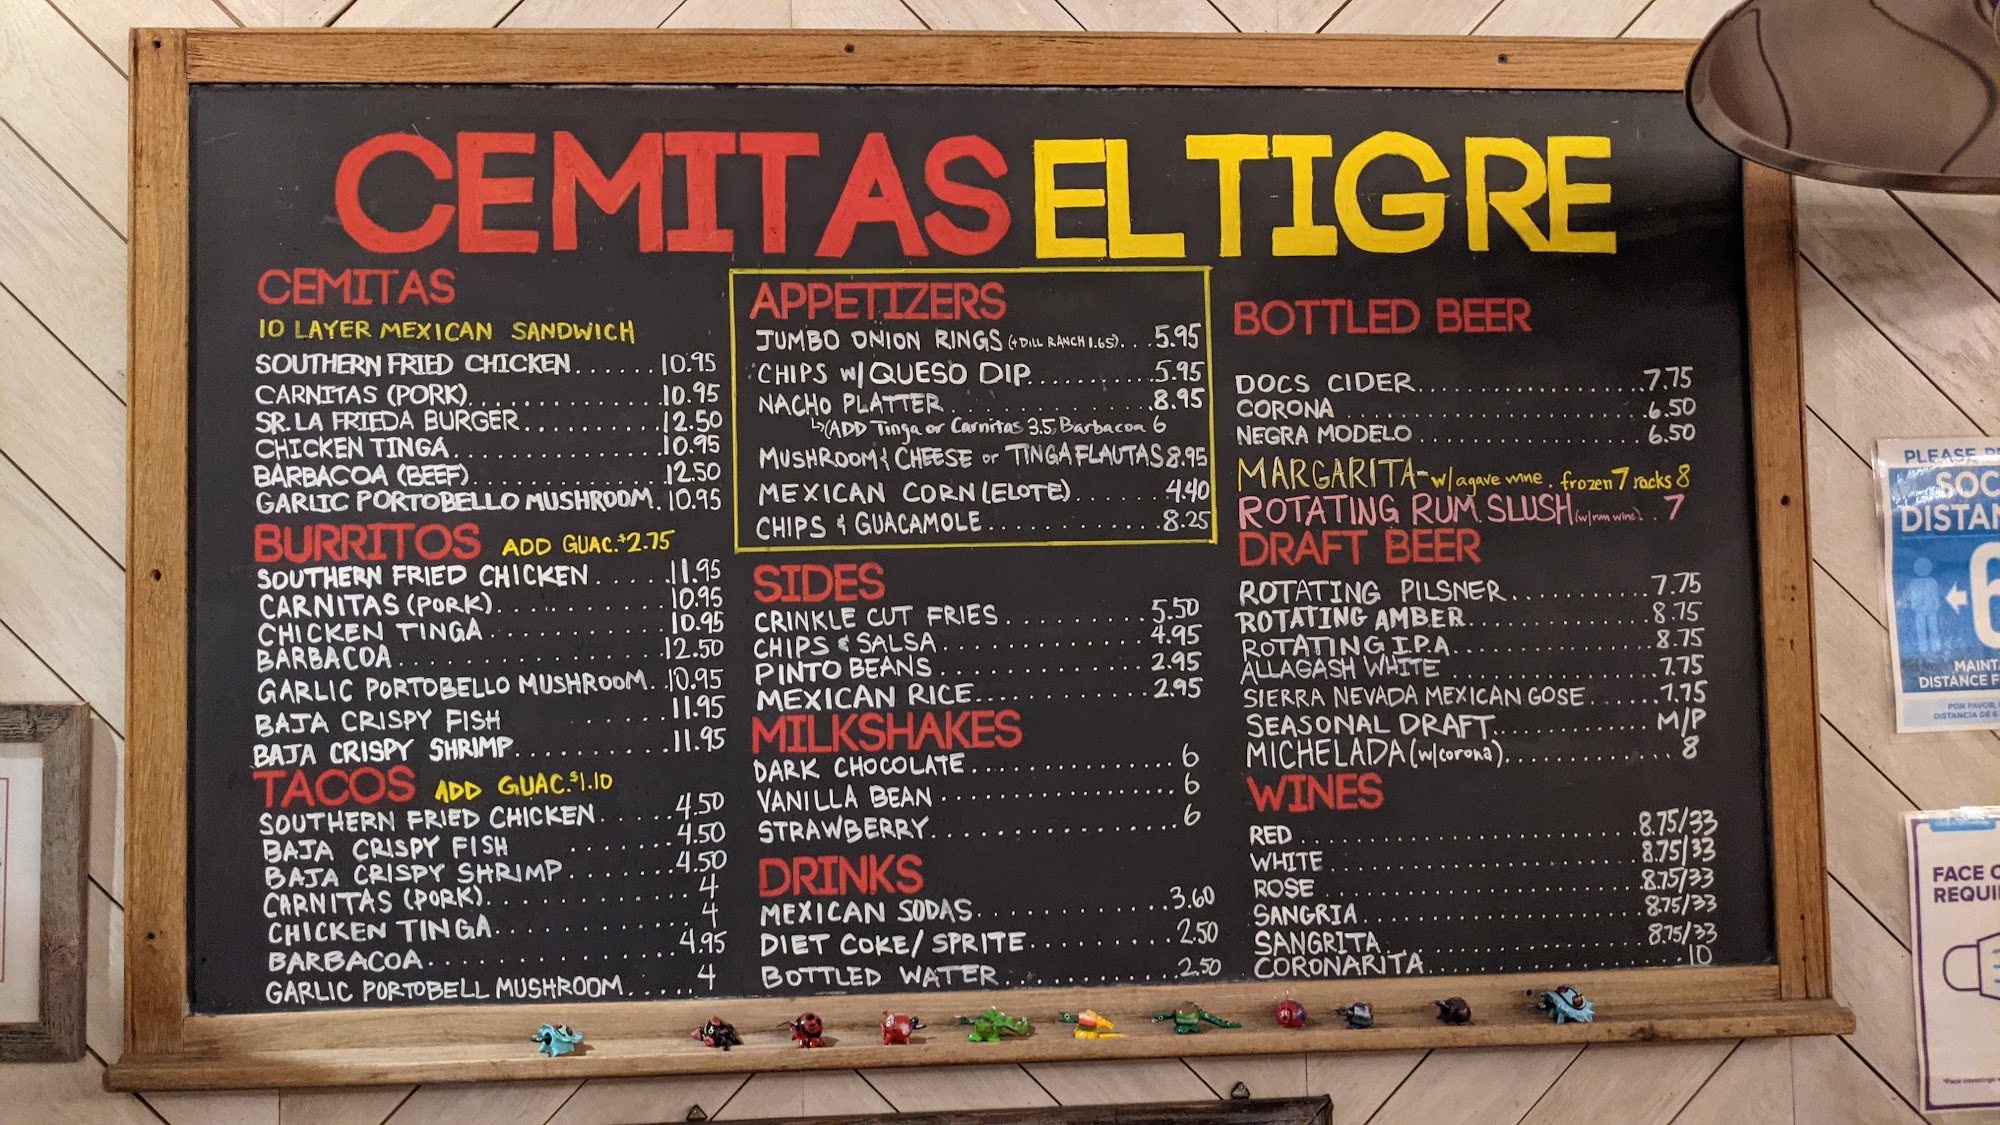 CEMITAS EL TIGRE
CEMITAS
10 LAYER MEXICAN SANDWICH
SOUTHERN FRIED CHICKEN......10.95
CARNITAS (PORK)..............10.95
SR. LA FRIEDA BURGER..........12.50
CHICKEN TINGA...............10.95
BARBACOA (BEEF)..............12.50
GARLIC PORTOBELLO MUSHROOM.10.95
BURRITOS ADD GUAC. $2.75
SOUTHERN FRIED CHICKEN.....11.95
CARNITAS (PORK)............10.95
CHICKEN TINGA............10.95
BARBACOA..................12.50
GARLIC PORTOBELLO MUSHROOM..10.95
BAJA CRISPY FISH .......11.95
BAJA CRISPY SHRIMP..........11.95
TACOS ADD GUAC. $1.10
SOUTHERN FRIED CHICKEN.....4.50
BAJA CRISPY FISH .......4.50
BAJA CRISPY SHRIMP.......4.50
CARNITAS (PORK)............4
CHICKEN TINGA............4
BARBACOA................4.95
GARLIC PORTOBELL MUSHROOM.....4
APPETIZERS
JUMBO ONION RINGS (+ DILL RANCH 1.65)...5.95
CHIPS W/ QUESO DIP..........5.95
NACHO PLATTER..............8.95
↳(ADD Tinga or Carnitas 3.5, Barbacoa 6
MUSHROOM & CHEESE or TINGA FLAUTAS 8.95
MEXICAN CORN (ELOTE).......4.40
CHIPS & GUACAMOLE............8.25
SIDES
CRINKLE CUT FRIES..........5.50
CHIPS & SALSA..............4.95
PINTO BEANS..............2.95
MEXICAN RICE............2.95
MILKSHAKES
DARK CHOCOLATE..............6
VANILLA BEAN................6
STRAWBERRY.................6
DRINKS
MEXICAN SODAS............3.60
DIET COKE/ SPRITE.........2.50
BOTTLED WATER...........2.50
BOTTLED BEER
DOCS CIDER................7.75
CORONA....................6.50
NEGRA MODELO..............6.50
MARGARITA- w/ agave wine. frozen 7 rocks 8
ROTATING RUM SLUSH (w/rum wine)..7
DRAFT BEER
ROTATING PILSNER..........7.75
ROTATING AMBER.............8.75
ROTATING I.P.A.............8.75
ALLAGASH WHITE.............7.75
SIERRA NEVADA MEXICAN GOSE.....7.75
SEASONAL DRAFT............M/P
MICHELADA (w/corona)............8
WINES
RED......................8.75/33
WHITE....................8.75/33
ROSE.....................8.75/33
SANGRIA...................8.75/33
SANGRITA..................8.75/33
CORONARITA..................10
PLEASE
DISTAN
6
MAINTA
DISTANCE F
POR FAVOR,
DISTANCIA DE 6
FACE
REQUI